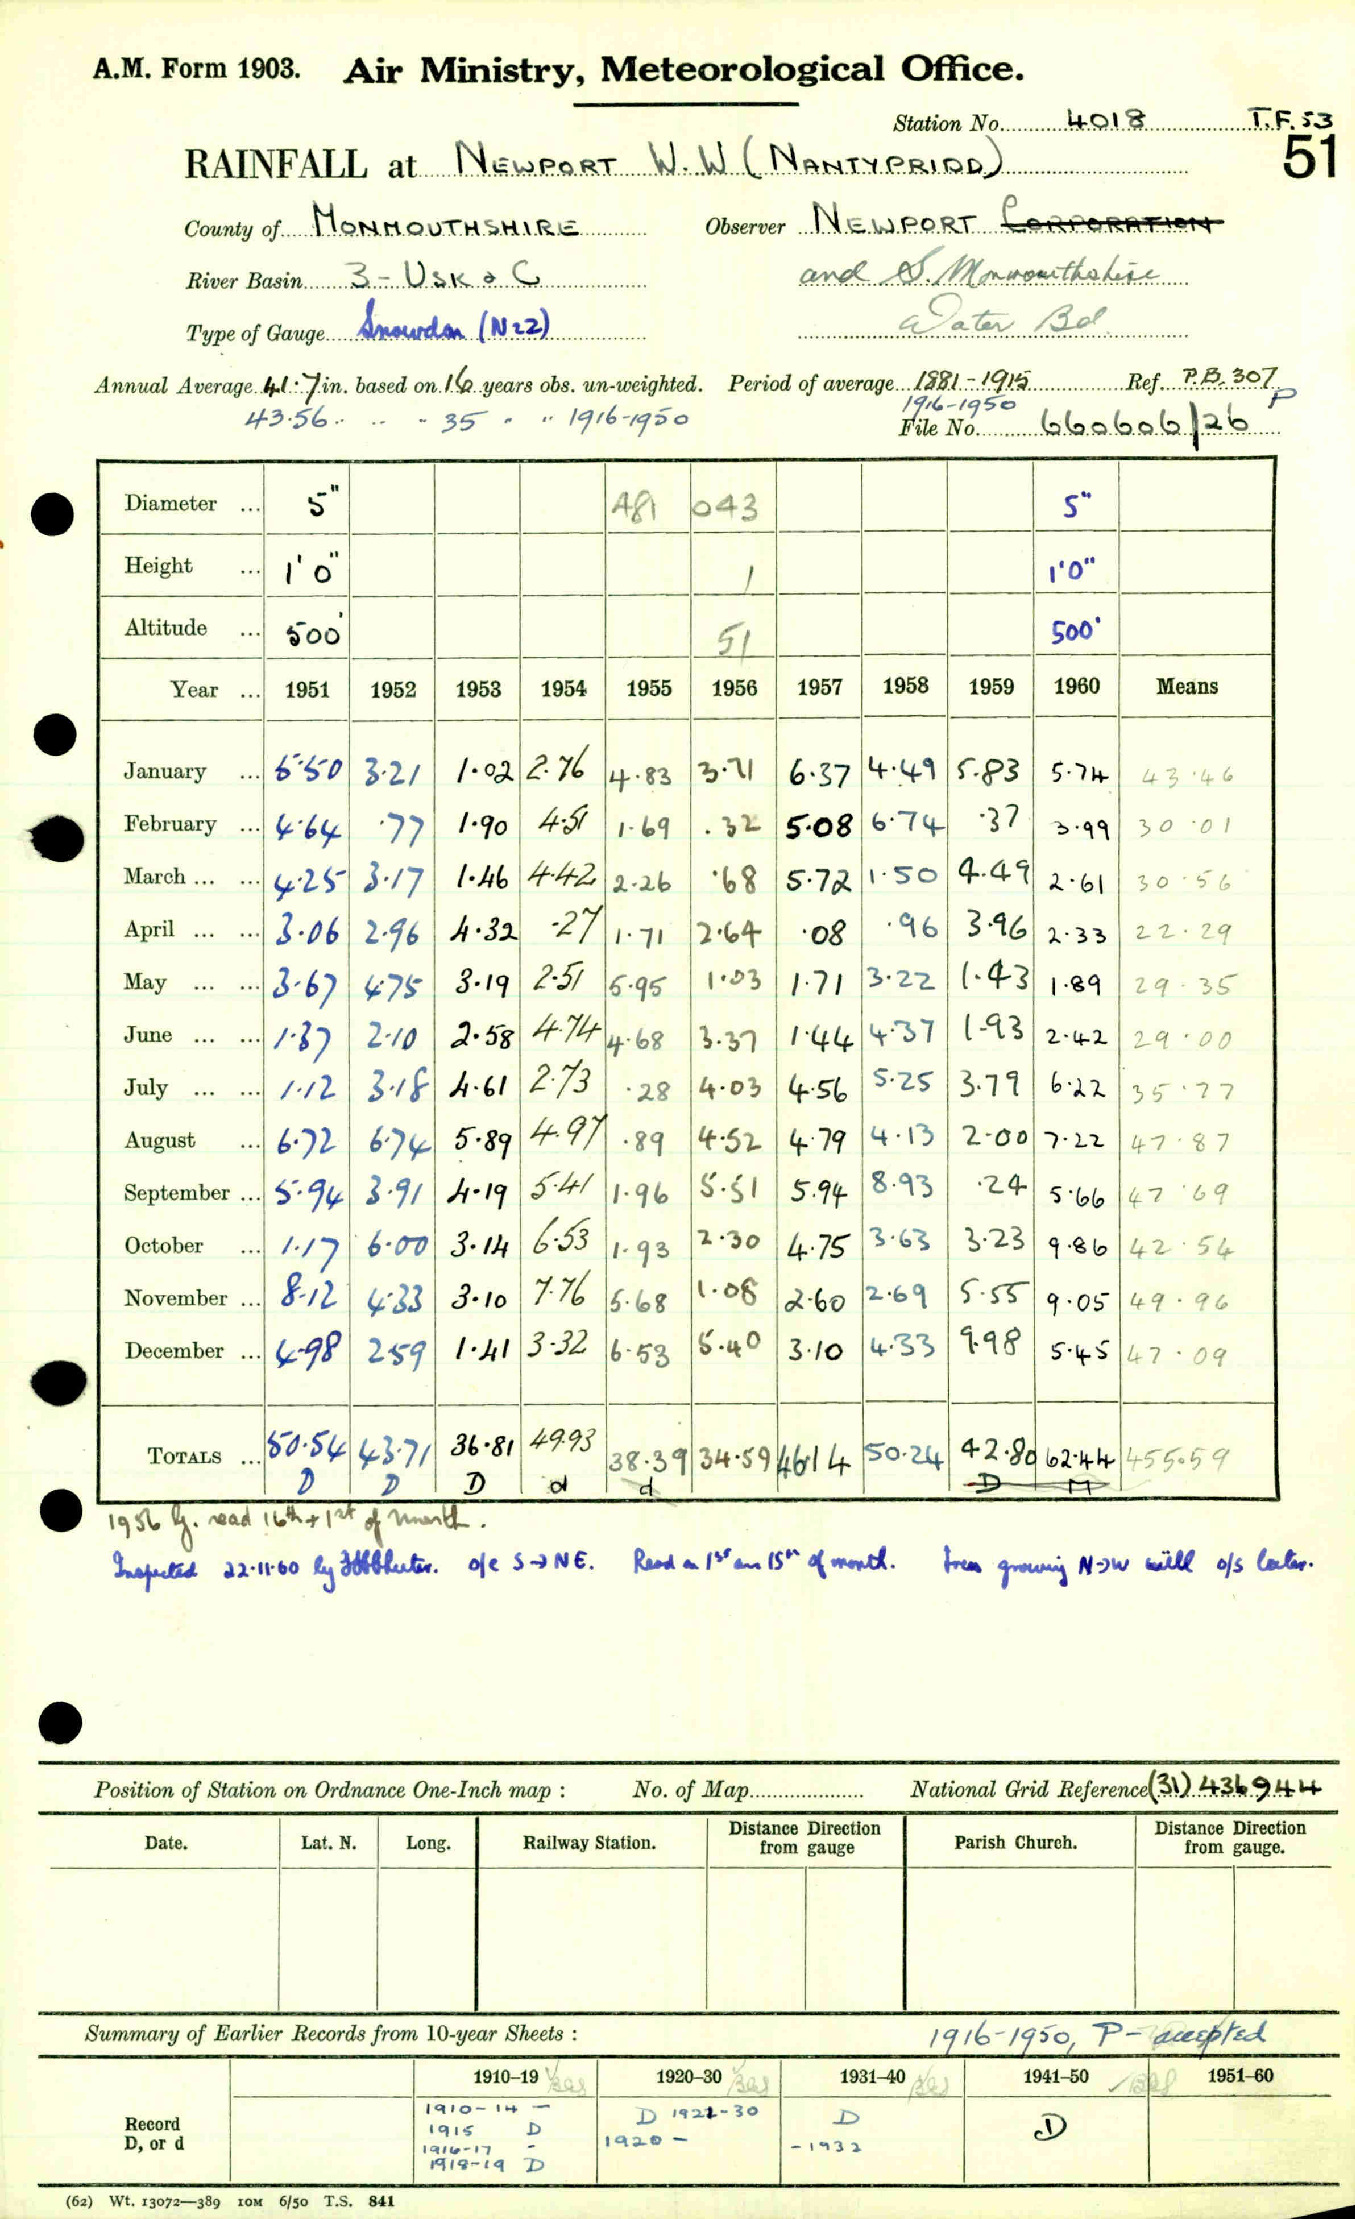 A.M. Form 1903. Air Ministry, Meteorological Office.
Station No. 4018 T.F. 53
RAINFALL at NEWPORT W.W (NANTYPRIDD) 51
County of MONMOUTHSHIRE Observer NEWPORT CORPORATION
River Basin 3 - USK & C and S. Monmouthshire
Type of Gauge Snowdon (N22) Water Bd.
Annual Average 41.7 in. based on 16 years obs. un-weighted. Period of average 1881-1915 Ref. P.B. 307
43.56 .. .. 35 " " 1916-1950 1916-1950 P
File No. 660606/26
Diameter ... 5" 481 043 5"
Height ... 1'0" 1 1'0"
Altitude ... 500' 51 500'
Year ... 1951 1952 1953 1954 1955 1956 1957 1958 1959 1960 Means
January ... 5.50 3.21 1.02 2.76 4.83 3.71 6.37 4.49 5.83 5.74 43.46
February ... 4.64 .77 1.90 4.51 1.69 .32 5.08 6.74 .37 3.99 30.01
March ... ... 4.25 3.17 1.46 4.42 2.26 .68 5.72 1.50 4.49 2.61 30.56
April ... ... 3.06 2.96 4.32 .27 1.71 2.64 .08 .96 3.96 2.33 22.29
May ... ... 3.67 4.75 3.19 2.51 5.95 1.03 1.71 3.22 1.43 1.89 29.35
June ... ... 1.37 2.10 2.58 4.74 4.68 3.37 1.44 4.37 1.93 2.42 29.00
July ... ... 1.12 3.18 4.61 2.73 .28 4.03 4.56 5.25 3.79 6.22 35.77
August ... 6.72 6.74 5.89 4.97 .89 4.52 4.79 4.13 2.00 7.22 47.87
September ... 5.94 3.91 4.19 5.41 1.96 5.51 5.94 8.93 .24 5.66 47.69
October ... 1.17 6.00 3.14 6.53 1.93 2.30 4.75 3.63 3.23 9.86 42.54
November ... 8.12 4.33 3.10 7.76 5.68 1.08 2.60 2.69 5.55 9.05 49.96
December ... 4.98 2.59 1.41 3.32 6.53 5.40 3.10 4.33 9.98 5.45 47.09
TOTALS ... 50.54 43.71 36.81 49.93 38.39 34.59 46.14 50.24 42.80 62.44 455.59
D D D d d D M
1956 G. read 16th + 1st of month.
Inspected 22.11.60 by o/c S→NE. Read on 1st an 15th of month. Trees growing N→W will o/s later.
Position of Station on Ordnance One-Inch map : No. of Map National Grid Reference (31) 436944
Date. Lat. N. Long. Railway Station. Distance from Direction gauge Parish Church. Distance from Direction gauge.
Summary of Earlier Records from 10-year Sheets : 1916-1950, P - accepted
1910–19 1920–30 1931–40 1941–50 1951–60
Record D, or d
1910-14 - D 1922-30 D D
1915 D 1920 - -1932
1916-17 -
1918-19 D
(62) Wt. 13072—389 10M 6/50 T.S. 841